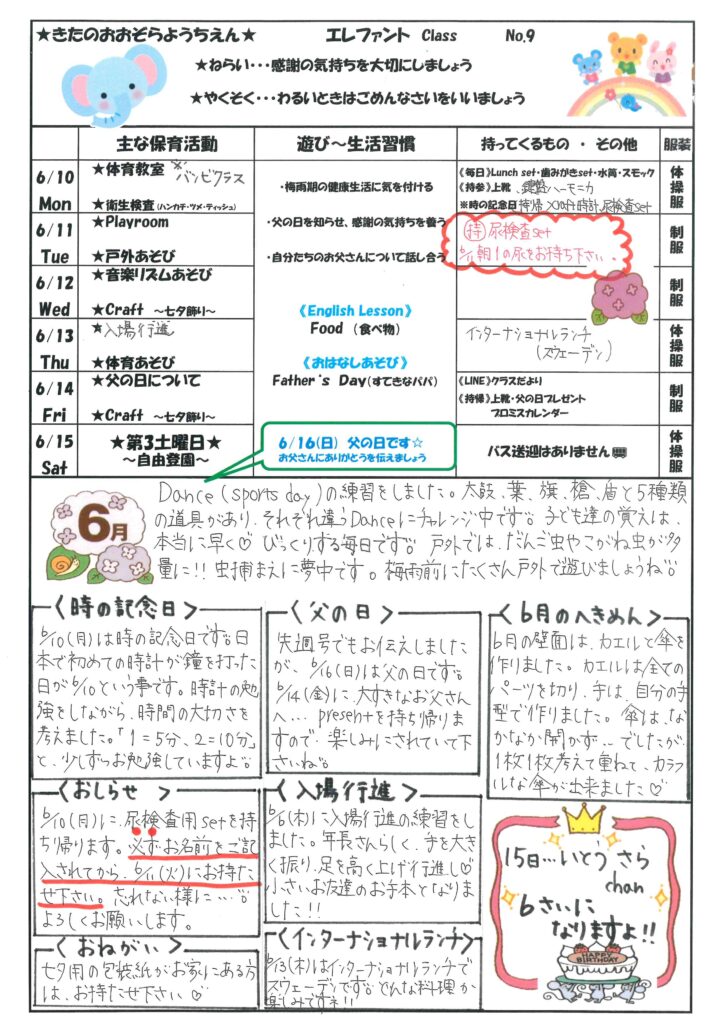 ★きたのおおぞらようちえん★ エレファント Class No.9
★ねらい・・・感謝の気持ちを大切にしましょう
★やくそく・・・わるいときはごめんなさいをいいましょう
主な保育活動 遊び～生活習慣 持ってくるもの ・ その他 服装
6/10 Mon
★体育教室 ※バンビクラス
★衛生検査(ハンカチ・ツメ・ティッシュ)
・梅雨期の健康生活に気を付ける
《毎日》Lunch set・歯みがきset・水筒・スモック
《持参》上靴、鍵盤ハーモニカ
※時の記念日 持帰
時計、尿検査set
体操服
6/11 Tue
★Playroom
★戸外あそび
・父の日を知らせ、感謝の気持ちを養う
・自分たちのお父さんについて話し合う
持 尿検査set
6/11朝1の尿をお持ち下さい。
制服
6/12 Wed
★音楽リズムあそび
★Craft ～七夕飾り～
《English Lesson》
制服
6/13 Thu
★入場行進
★体育あそび
Food (食べ物)
《おはなしあそび》
インターナショナルランチ
(スウェーデン)
体操服
6/14 Fri
★父の日について
★Craft ～七夕飾り～
Father's Day(すてきなパパ)
《LINE》クラスだより
《持帰》上靴・父の日プレゼント
プロミスカレンダー
制服
6/15 Sat
★第3土曜日★
～自由登園～
6/16(日) 父の日です☆
お父さんにありがとうを伝えましょう
バス送迎はありません
体操服
6月
Dance(sports day)の練習をしました。太鼓、葉、旗、槍、盾と5種類
の道具があり、それぞれ違うDanceにチャレンジ中です。子ども達の覚えは、
本当に早く♡ びっくりする毎日です。戸外では、だんご虫やこがね虫が多
量に!! 虫捕まえに夢中です。梅雨前にたくさん戸外で遊びましょうね。
〈時の記念日〉
6/10(月)は時の記念日です。日
本で初めての時計が鐘を打った
日が6/10という事です。時計の勉
強をしながら、時間の大切さを
考えました。「1=5分、2=10分」
と、少しずつお勉強していますよ。
〈父の日〉
先週号でもお伝えしました
が、6/16(日)は父の日です。
6/14(金)に、大すきなお父さん
へ… presentを持ち帰りま
すので、楽しみにされていて下
さいね。
〈6月のへきめん〉
6月の壁面は、カエルと傘を
作りました。カエルは全ての
パーツを切り、手は、自分の手
型で作りました。傘は、な
かなか開かず…でしたが、
1枚1枚考えて重ねて、カラフ
ルな傘が出来ました♡
〈おしらせ〉
6/10(月)に、尿検査用setを持
ち帰ります。必ずお名前をご記
入されてから、6/11(火)にお持た
せ下さい。忘れない様に…。
よろしくお願いします。
〈入場行進〉
6/6(木)に入場行進の練習をし
ました。年長さんらしく、手を大き
く振り、足を高く上げ行進し♡
小さいお友達のお手本となりま
した!!
15日…いとう さら
chan
6さいに
なりますよ!!
HAPPY BIRTHDAY
〈おねがい〉
七夕用の包装紙がお家にある方
は、お持たせ下さい♡
〈インターナショナルランチ〉
6/13(木)はインターナショナルランチで
スウェーデンです。どんな料理か
楽しみですネ!!